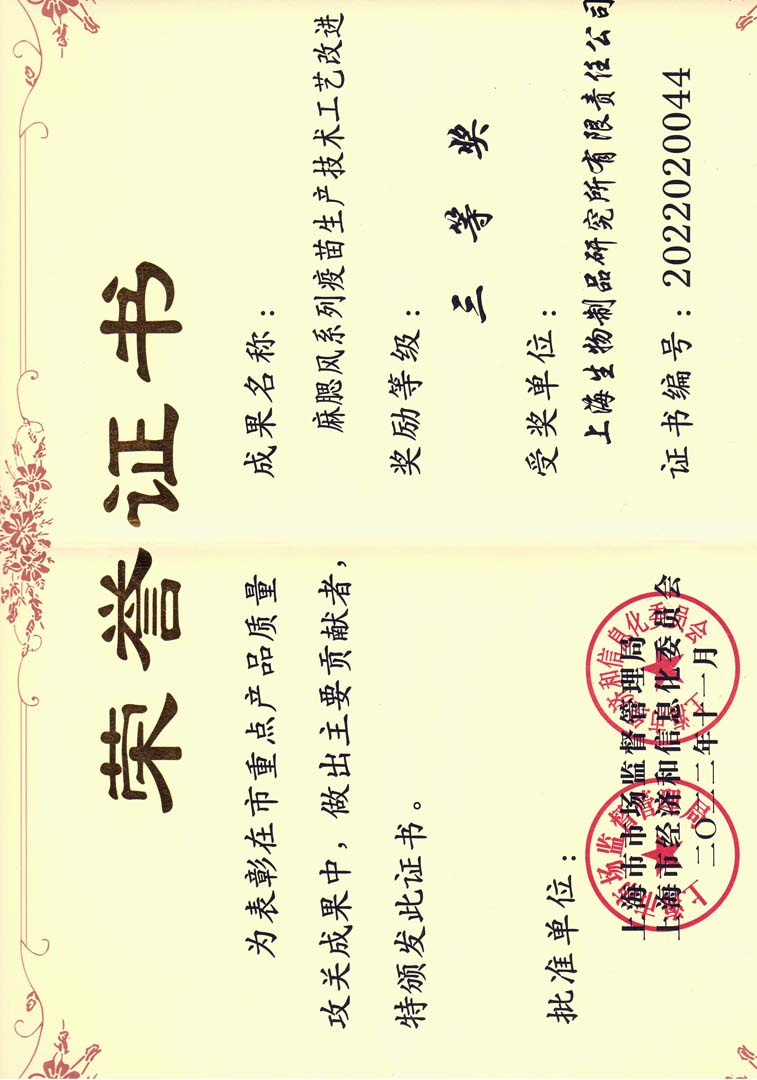 荣誉证书
为表彰在市重点产品质量
攻关成果中，做出主要贡献者，
特颁发此证书。
批准单位：
上海市市场监督管理局
上海市经济和信息化委员会
二〇二二年十一月
成果名称：
麻腮风系列疫苗生产技术工艺改进
奖励等级：
三等奖
受奖单位：
上海生物制品研究所有限责任公司
证书编号：2022020044